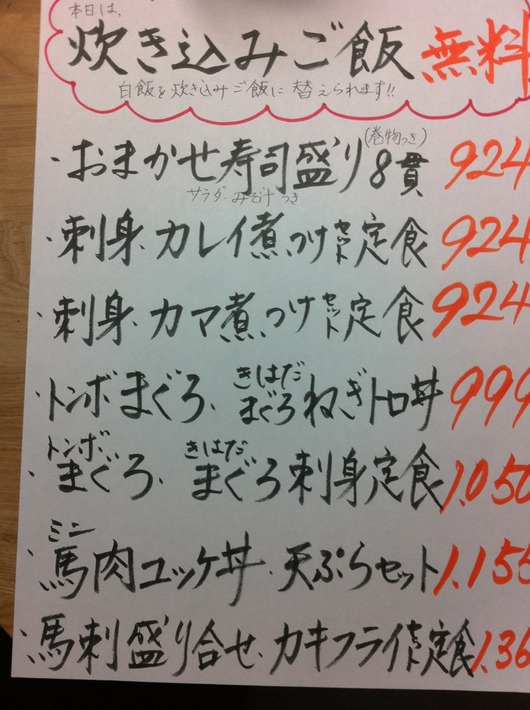 本日は、
炊き込みご飯 無料
白飯を炊き込みご飯に替えられます!!
・おまかせ寿司盛り8貫(巻物つき) 924
サラダ・みそ汁つき
・刺身、カレイ煮つけセット定食 924
・刺身、カマ煮つけセット定食 924
・トンボまぐろ、きはだまぐろねぎトロ丼 999
・トンボまぐろ、きはだまぐろ刺身定食 1.050
・ミニ馬肉ユッケ丼、天ぷらセット 1.155
・馬刺盛り合せ、カキフライセット定食 1.36